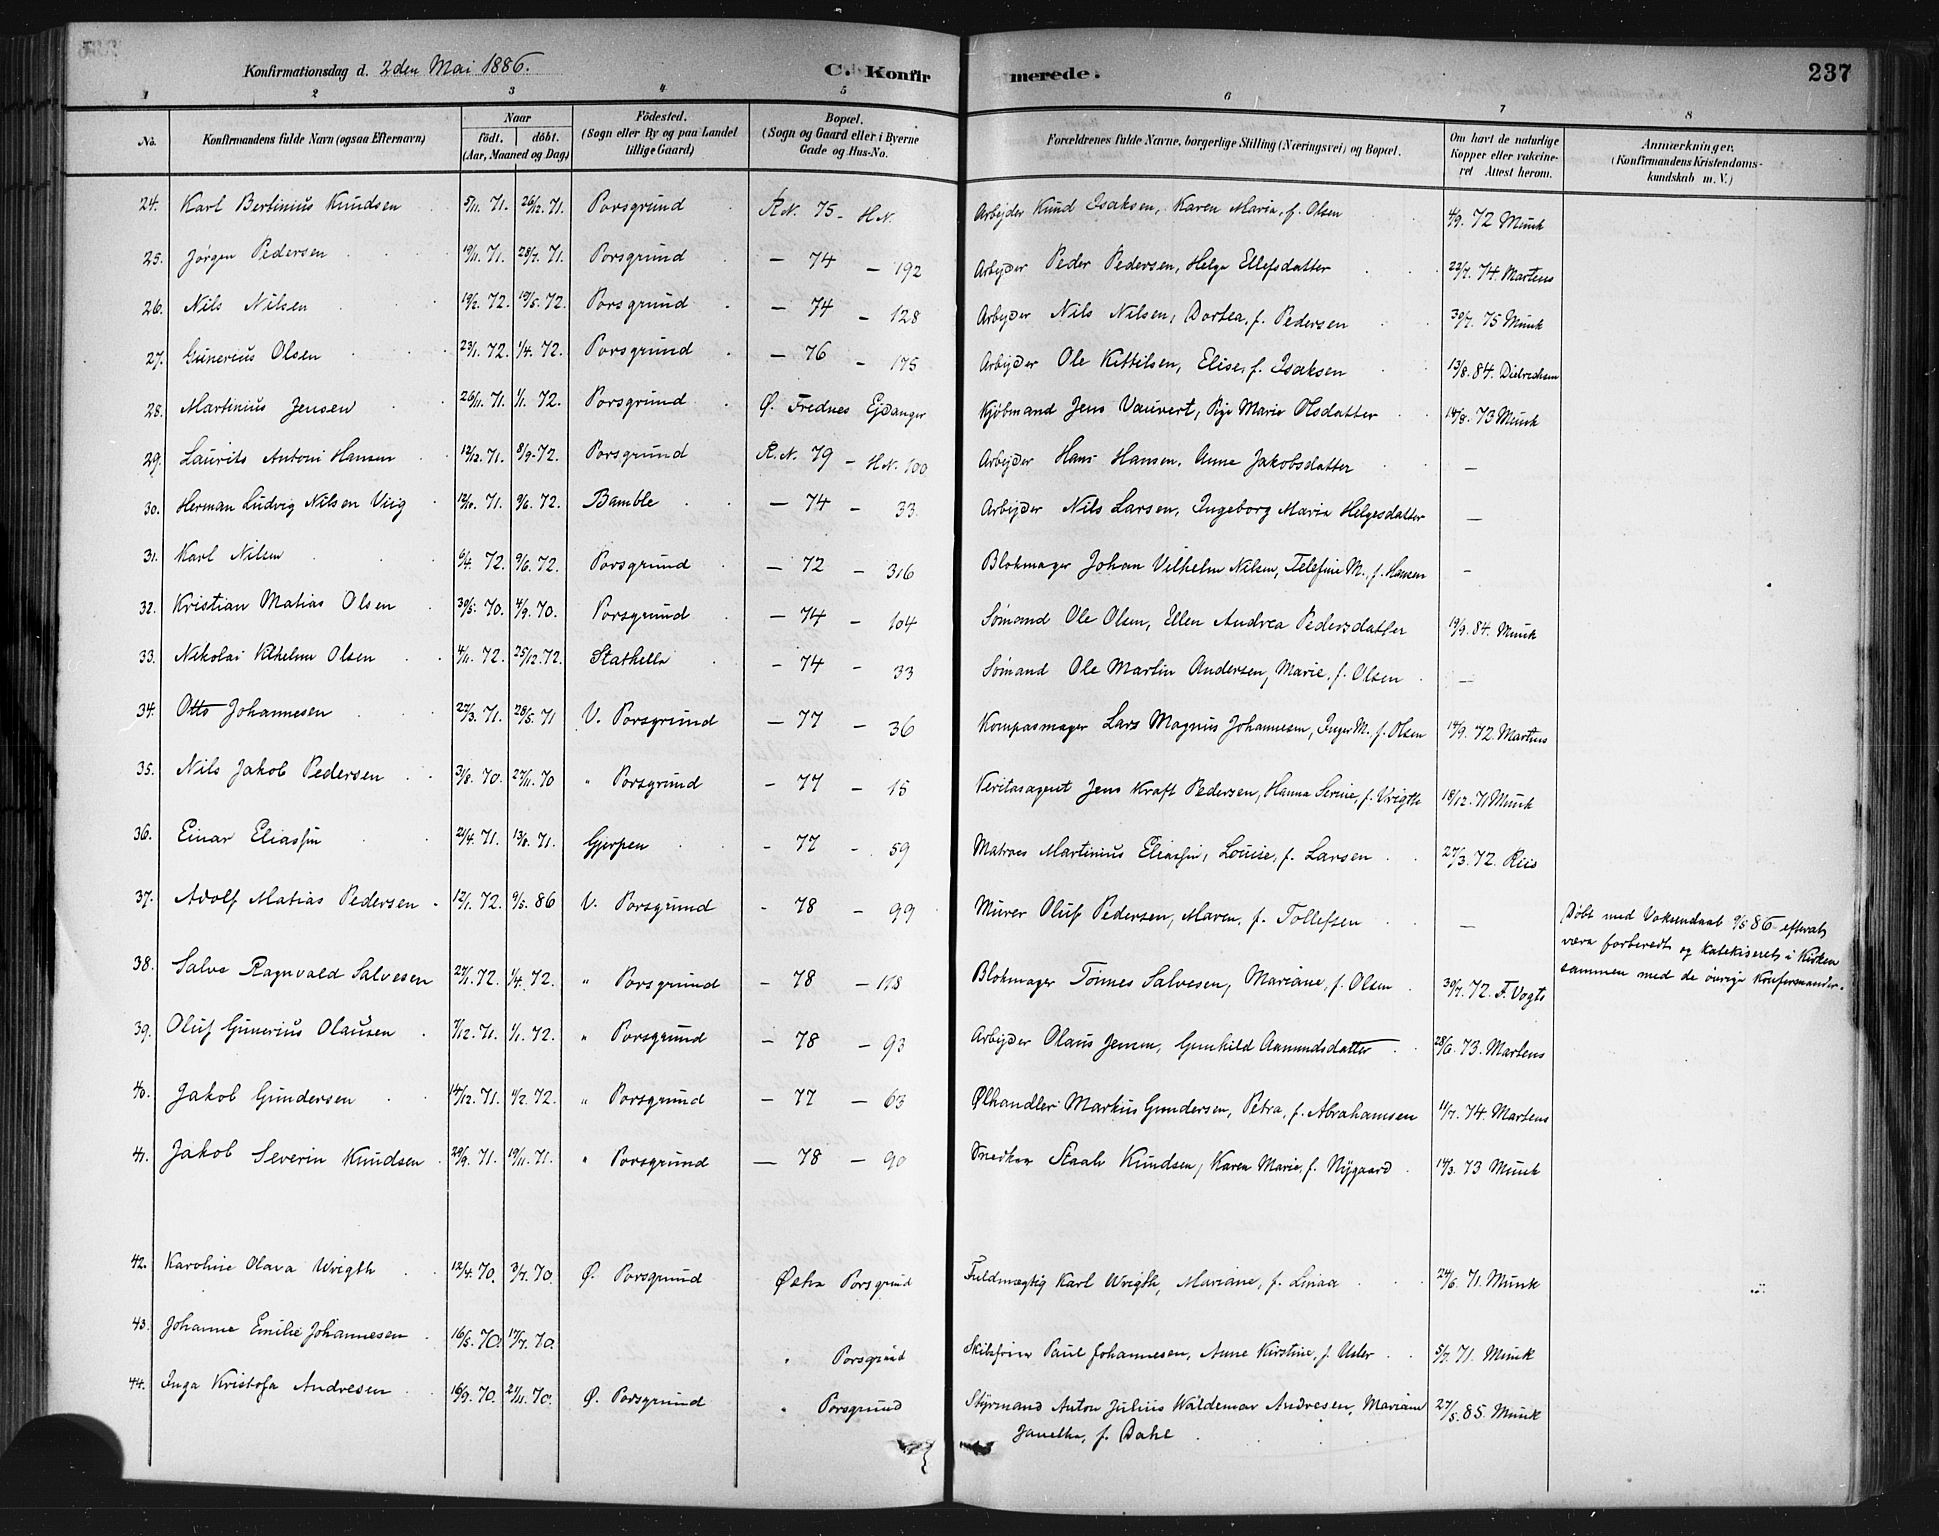 237
Konfirmationsdag d. 2den Mai 1886.
C. Konfirmerede.
1 2 3 4 5 6 7 8
No. Konfirmandens fulde Navn (ogsaa Efternavn) Naar født. døbt. (Aar, Maaned og Dag) Fødested. (Sogn eller By og paa Landet tillige Gaard) Bopæl. (Sogn og Gaard eller i Byerne Gade og Hus-No. Forældrenes fulde Navne, borgerlige Stilling (Næringsvei) og Bopæl. Om havt de naturlige Kopper eller vakcineret Attest herom. Anmærkninger. (Konfirmandens Kristendomskundskab m. V.)
24. Karl Bertinius Knudsen 5/11. 71. 26/12. 71. Porsgrund R.N. 75 - H.N. Arbejder Knud Isaksen, Karen Maria, f. Olsen 4/9. 72 Munk
25. Jørgen Pedersen 19/11. 71. 28/7. 71. Porsgrund — 74 — 192 Arbejder Peder Pedersen, Helge Ellefsdatter 22/7. 74 Martens
26. Nils Nilsen 19/2. 72. 19/5. 72. Porsgrund — 74 — 128 Arbejder Nils Nilsen, Dortea, f. Pedersen 30/7. 75 Munk
27. Gunerius Olsen 23/1. 72. 1/4. 72. Porsgrund — 76 — 175 Arbejder Ole Kittilsen, Elise, f. Isaksen 13/8. 84.
28. Martinius Jensen 26/11. 71. 1/1. 72. Porsgrund Ø. Frednes Ejdanger Kjøbmand Jens Vauvert, Marie Olsdatter 14/8. 73 Munk
29. Laurits Antoni Hansen 12/12. 71. 8/9. 72. Porsgrund R.N. 79 — H.N. 100 Arbejder Hans Hansen, Anne Jakobsdatter —
30. Herman Ludvig Nilsen Viig 12/10. 71. 9/6. 72. Bamble — 74 — 33 Arbejder Nils Larsen, Ingeborg Maria Helgesdatter —
31. Karl Nilsen 6/4. 72. 9/6. 72. Porsgrund — 72 — 316 Blokmager Johan Vilhelm Nilsen, Telefine M., f. Hansen —
32. Kristian Matias Olsen 30/5. 70. 4/9. 70. Porsgrund — 74 — 104 Sømand Ole Olsen, Ellen Andrea Pedersdatter 19/9. 84. Munk
33. Nikolai Vilhelm Olsen 4/11. 72. 25/12. 72. Stathelle — 74 — 33 Sømand Ole Martin Andersen, Marie, f. Olsen —
34. Otto Johannesen 22/3. 71. 28/5. 71 V. Porsgrund — 77 — 36 Kompasmager Lars Magnus Johannesen, Inger M., f. Olsen 14/9. 72. Martens
35. Nils Jakob Pedersen 31/8. 70. 27/11. 70 " Porsgrund — 77 — 15 Veritasagent Jens Kraft Pedersen, Hanna Serine, f. Wrigth 18/12. 71 Munk
36. Einar Eliassen 21/4. 71. 13/8. 71. Gjerpen - 77 - 59 Matros Martinius Eliassen, Louise, f. Larsen 27/3. 72. Riis
37. Adolf Matias Pedersen 12/1. 72. 9/5. 86 V. Porsgrund - 78 — 99 Murer Oluf Pedersen, Maren, f. Tollefsen — Døbt med Voksendaab 9/5 86 efterat
være forberedt og katekiseret i Kirken
sammen med de øvrige Konfirmander.
38. Salve Ragnvald Salvesen 27/1. 72. 1/4. 72. " Porsgrund - 78 — 118 Blokmager Tønnes Salvesen, Mariane, f. Olsen 30/7. 72. F. Vogt
39. Oluf Gunerius Olausen 7/12. 71. 1/1. 72. " Porsgrund — 78 — 93 Arbejder Olaus Jensen, Gunhild Aamundsdatter 28/6. 73. Martens
40. Jakob Gundersen 14/12. 71. 11/2. 72. " Porsgrund — 77 — 63 Ølhandler Markus Gundersen, Petra, f. Abrahamsen 11/7. 74. Martens
41. Jakob Severin Knudsen 29/9. 71. 19/11. 71. " Porsgrund — 78 — 90 Snedker Staale Knudsen, Karen Marie, f. Nygaard 14/3. 73 Munk
42. Karoline Olava Wrigth 12/4. 70. 3/7. 70. Ø. Porsgrund Østre Porsgrund Fuldmægtig Karl Wrigth, Mariane, f. Linaa 24/6. 71. Munk
43. Johanne Emilie Johannesen 16/5. 70. 17/7. 70. " Porsgrund Skibsfører Paul Johannesen, Anne Kirstine, f. 5/7. 71. Munk
44. Inga Kristofa Andresen 16/9. 70. 27/11. 70. Ø. Porsgrund " Porsgrund Styrmand Anton Julius Waldemar Andresen, Mariane 27/5. 85. Munk
f. Dahl